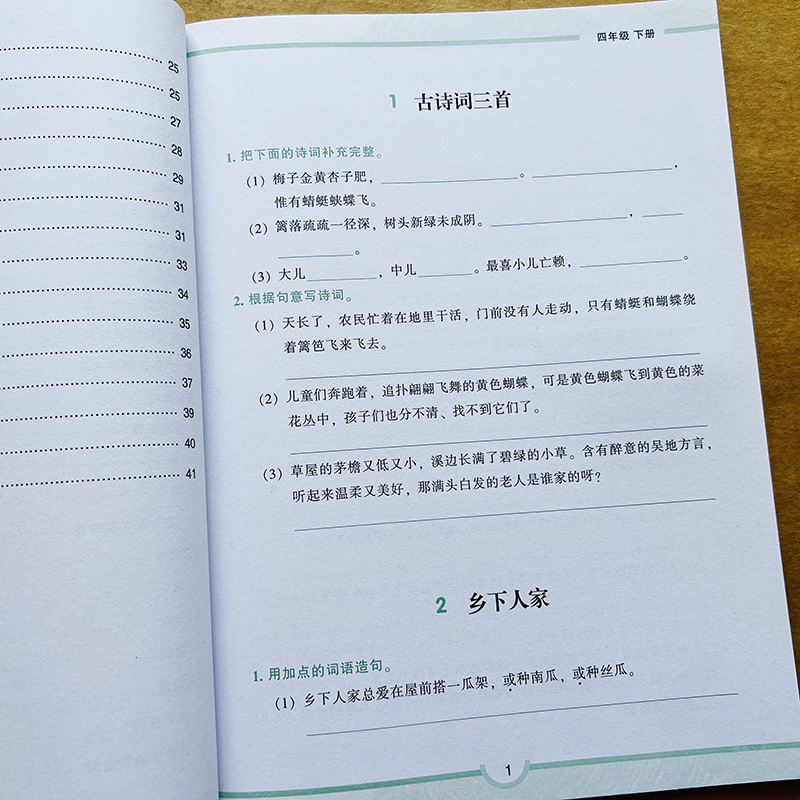 25
25
27
28
29
31
31
33
34
35
36
37
39
40
41
四年级 下册
1 古诗词三首
1. 把下面的诗词补充完整。
(1) 梅子金黄杏子肥，________。________，
惟有蜻蜓蛱蝶飞。
(2) 篱落疏疏一径深，树头新绿未成阴。________，____
________。
(3) 大儿________，中儿________。最喜小儿亡赖，________。
2. 根据句意写诗词。
(1) 天长了，农民忙着在地里干活，门前没有人走动，只有蜻蜓和蝴蝶绕
着篱笆飞来飞去。
(2) 儿童们奔跑着，追扑翩翩飞舞的黄色蝴蝶，可是黄色蝴蝶飞到黄色的菜
花丛中，孩子们也分不清、找不到它们了。
(3) 草屋的茅檐又低又小，溪边长满了碧绿的小草。含有醉意的吴地方言，
听起来温柔又美好，那满头白发的老人是谁家的呀？
2 乡下人家
1. 用加点的词语造句。
(1) 乡下人家总爱在屋前搭一瓜架，或种南瓜，或种丝瓜。
1